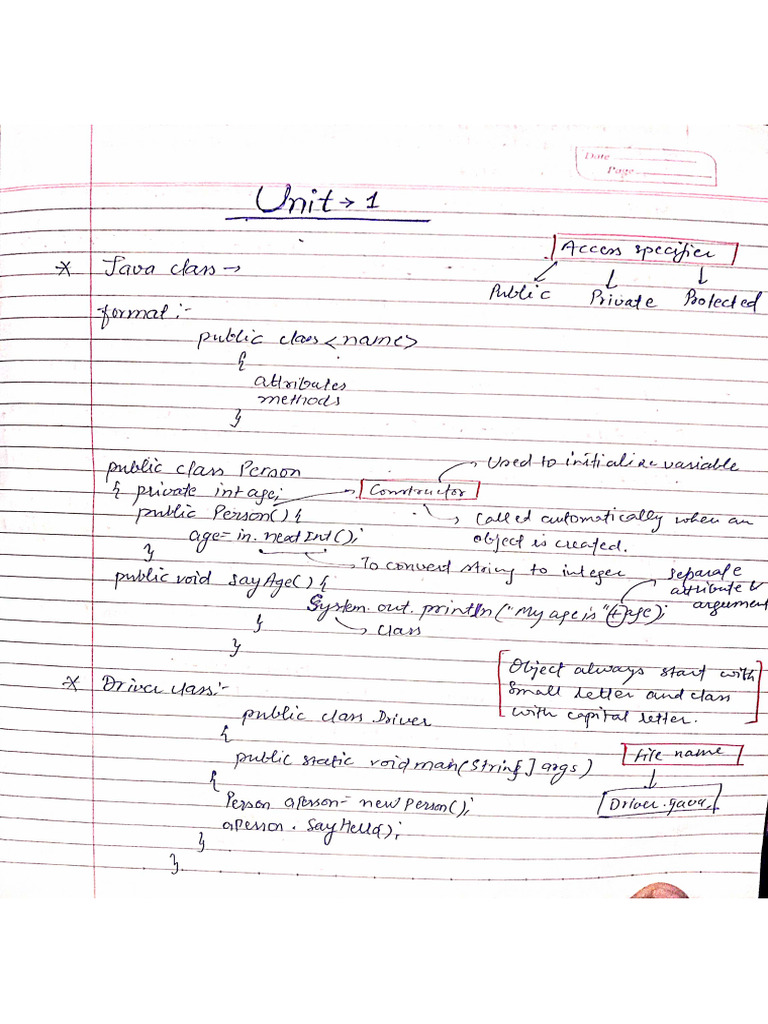 Date
Page
Unit → 1
Access specifier
* Java class →
Public Private Protected
format :-
public class <name>
{
attributes
methods
}
Used to initialize variable
public class Person
{ private int age;
Constructor
public Person() {
Called automatically when an
age = in.nextInt();
object is created.
}
To convert string to integer
separate
attribute &
argument
public void sayAge() {
System.out.println("My age is "+age);
}
class
}
Object always start with
small letter and class
with capital letter.
* Driver class :-
public class Driver
{
File name
public static void main(String[] args)
{
Driver.java
Person aperson = new Person();
aperson.sayHello();
}
}